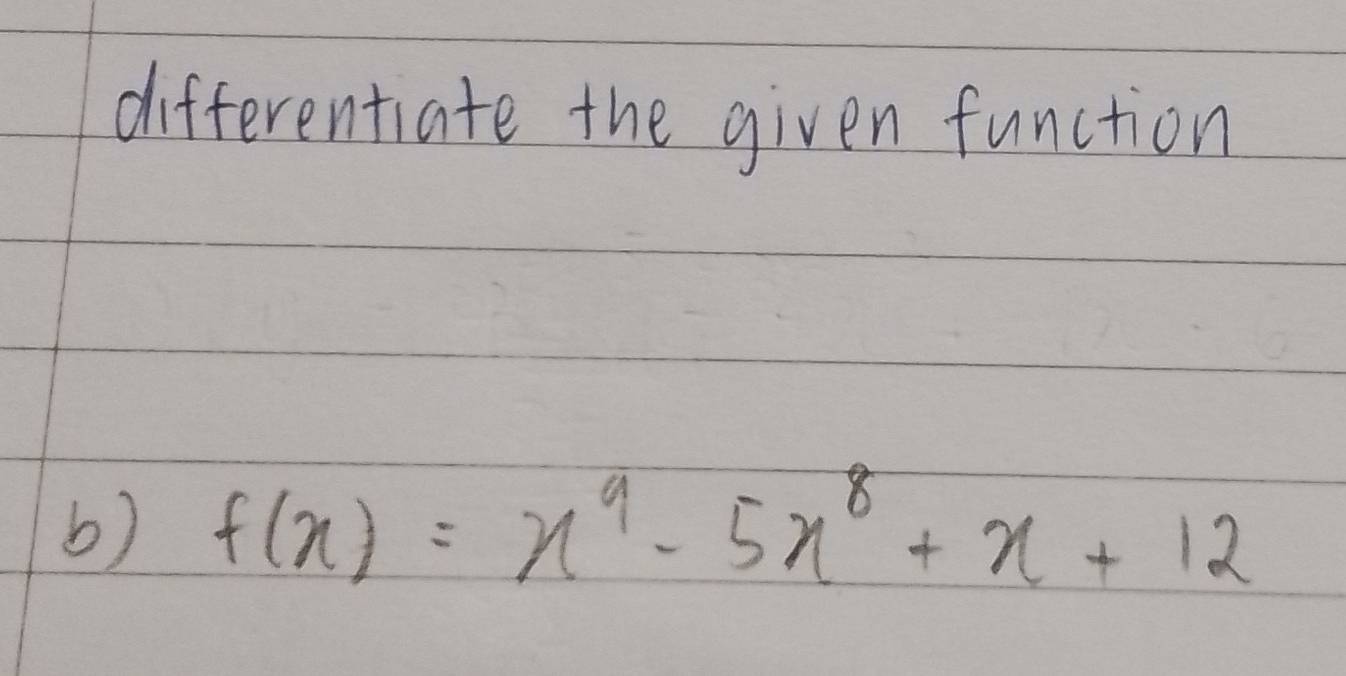 differentiate the given function
b) f(x) = x⁹ - 5x⁸ + x + 12